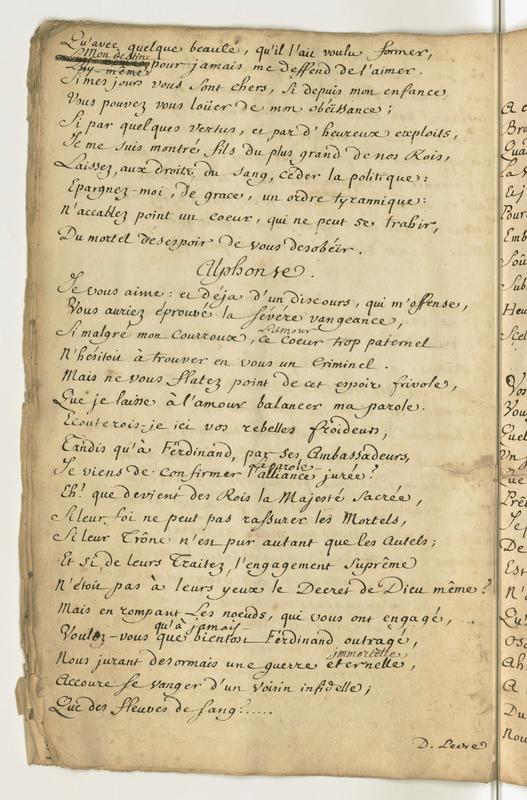 Qu'avec quelque beauté, qu'il l'ait voulu former,
Mon destin
Luy-même pour jamais me deffend de l'aimer.
Si mes jours vous sont chers, si depuis mon enfance
Vous pouvez vous loüer de mon obéissance;
Si par quelques vertus, et par d'heureux exploits,
Je me suis montré fils du plus grand de nos Rois,
Laissez, aux droits du sang, céder la politique:
Epargnez-moi, de grace, un ordre tyrannique:
N'accablez point un coeur, qui ne peut se trahir,
Du mortel désespoir de vous desobéir.
Alphonse.
Je vous aime: et déja d'un discours, qui m'offense,
Vous auriez éprouvé la sévére vangeance,
l'amour
Si malgré mon courroux, ce coeur trop paternel
N'hésitoit à trouver en vous un Criminel.
Mais ne vous flatez point de cet espoir frivole,
Que je laisse à l'amour balancer ma parole.
Ecouterois-je ici vos rebelles froideurs,
Tandis qu'à Ferdinand, par ses Ambassadeurs,
la parole
Je viens de confirmer l'alliance jurée?
Eh! que devient des Rois la Majesté sacrée,
Si leur foi ne peut pas rassurer les Mortels,
Si leur Trône n'est pur autant que les Autels;
Et si, de leurs Traitez, l'engagement suprême
N'étoit pas à leurs yeux le Decret de Dieu même?
Mais en rompant les noeuds, qui vous ont engagé, ...
qu'à jamais
Voulez-vous que bientost Ferdinand outragé,
immortelle,
Nous jurant desormais une guerre éternelle,
Accoure se vanger d'un voisin infidelle;
Que des fleuves de sang......